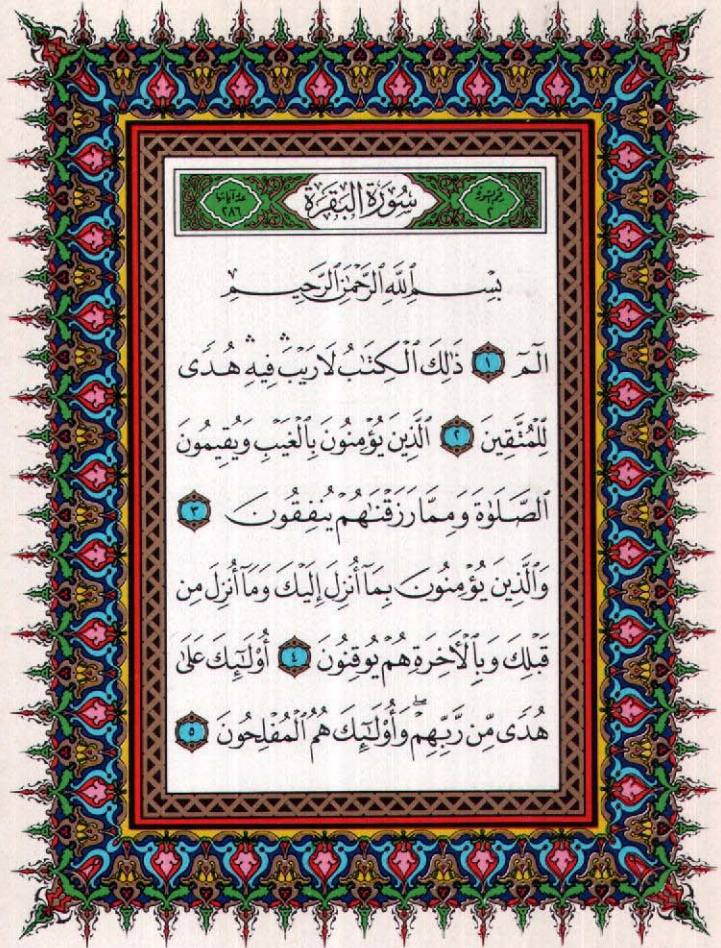 رقم السورة ٢ سُورَةُ البَقَرَةِ عدد آياتها ٢٨٦
بِسْمِ ٱللَّهِ ٱلرَّحْمَٰنِ ٱلرَّحِيمِ
الٓمٓ ١ ذَٰلِكَ ٱلْكِتَٰبُ لَا رَيْبَ ۛ فِيهِ ۛ هُدًى
لِّلْمُتَّقِينَ ٢ ٱلَّذِينَ يُؤْمِنُونَ بِٱلْغَيْبِ وَيُقِيمُونَ
ٱلصَّلَوٰةَ وَمِمَّا رَزَقْنَٰهُمْ يُنفِقُونَ ٣
وَٱلَّذِينَ يُؤْمِنُونَ بِمَآ أُنزِلَ إِلَيْكَ وَمَآ أُنزِلَ مِن
قَبْلِكَ وَبِٱلْءَاخِرَةِ هُمْ يُوقِنُونَ ٤ أُو۟لَٰٓئِكَ عَلَىٰ
هُدًى مِّن رَّبِّهِمْ ۖ وَأُو۟لَٰٓئِكَ هُمُ ٱلْمُفْلِحُونَ ٥